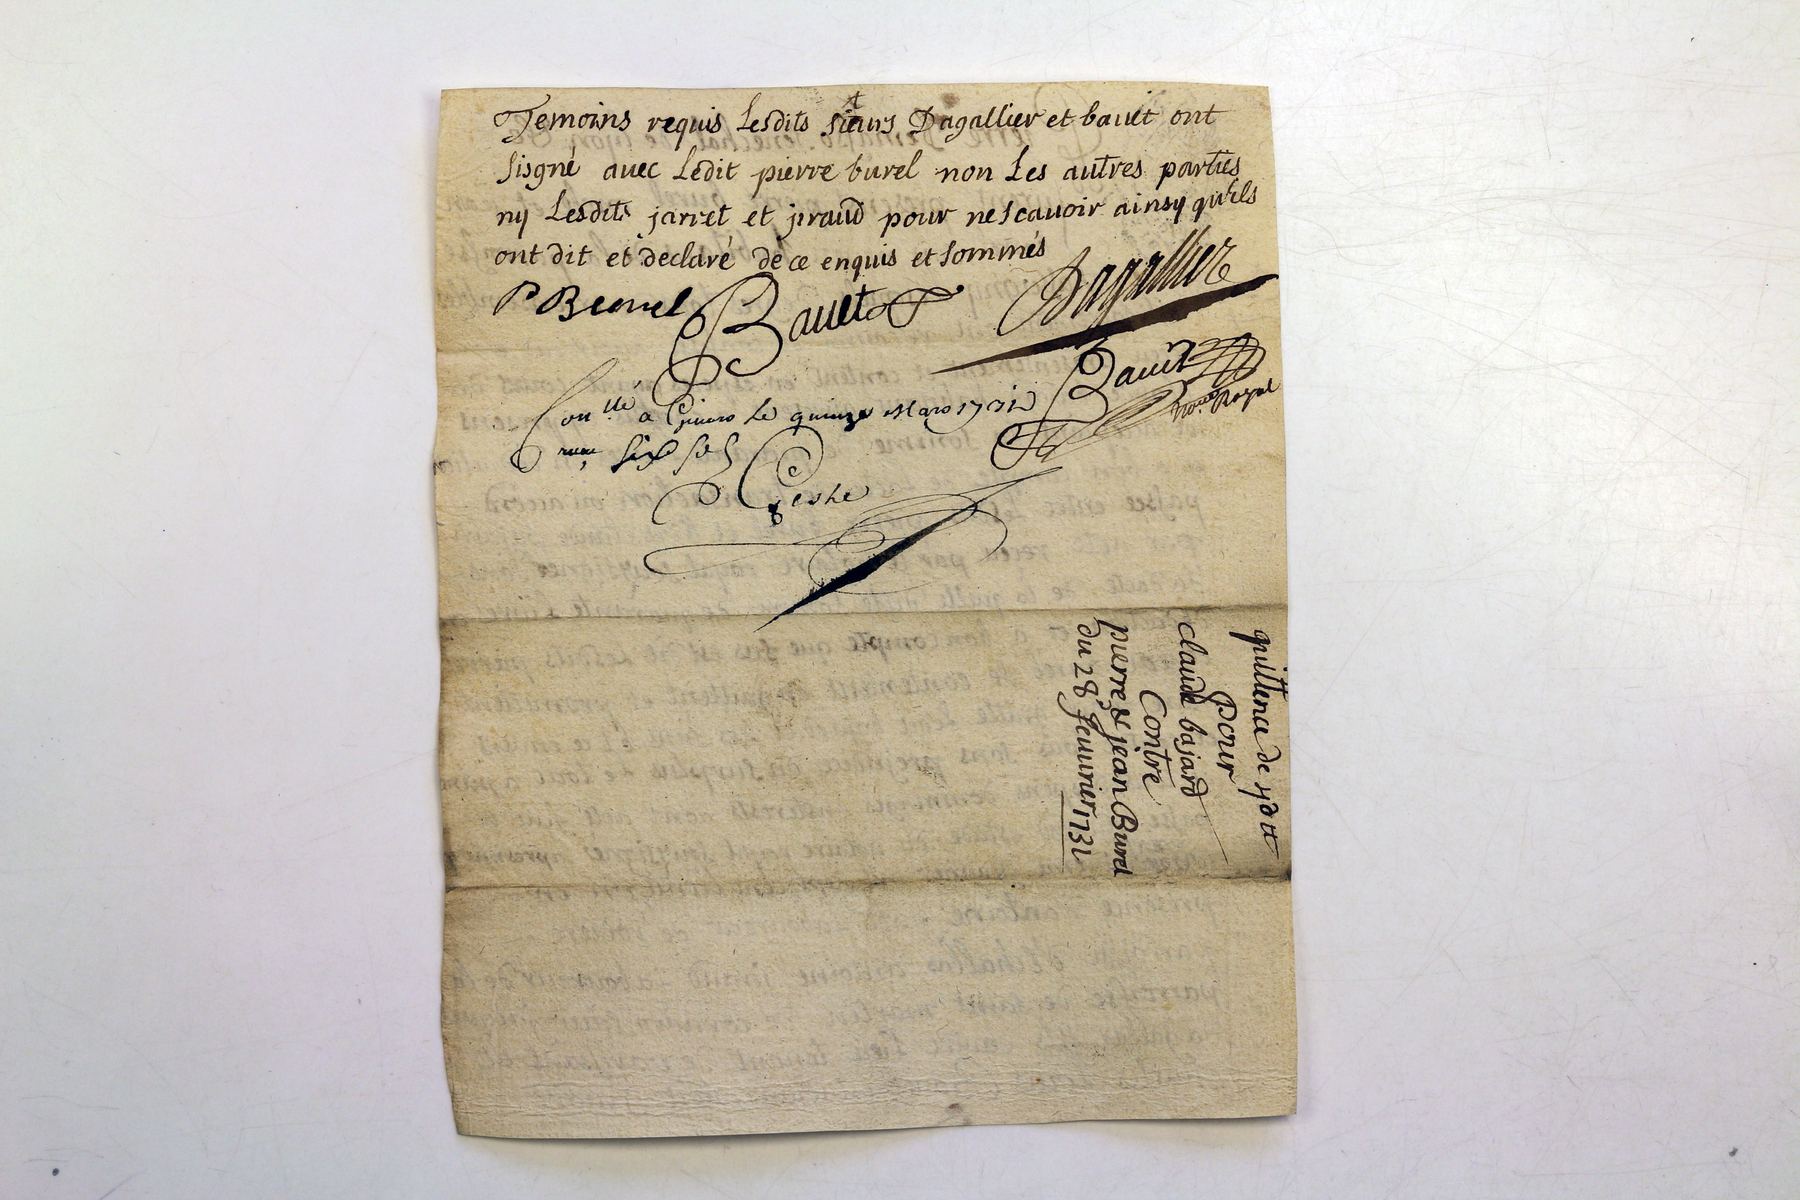 Temoins requis Lesdits sieurs Dagallier et bauet ont
sisgné auec Ledit pierre burel non Les autres parties
ny Lesdits jarret et jiraud pour nescauoir ainsy quils
ont dit et declaré de ce enquis et sommés
P Beurel Bauet Dagallier
Bauet
no.re Royal
Con.llé a Giuors Le quinze Mars 1731
six
quittence de
Pour
claude bajard
Contre
pierre & jean Burel
du 28e feuurier 1731